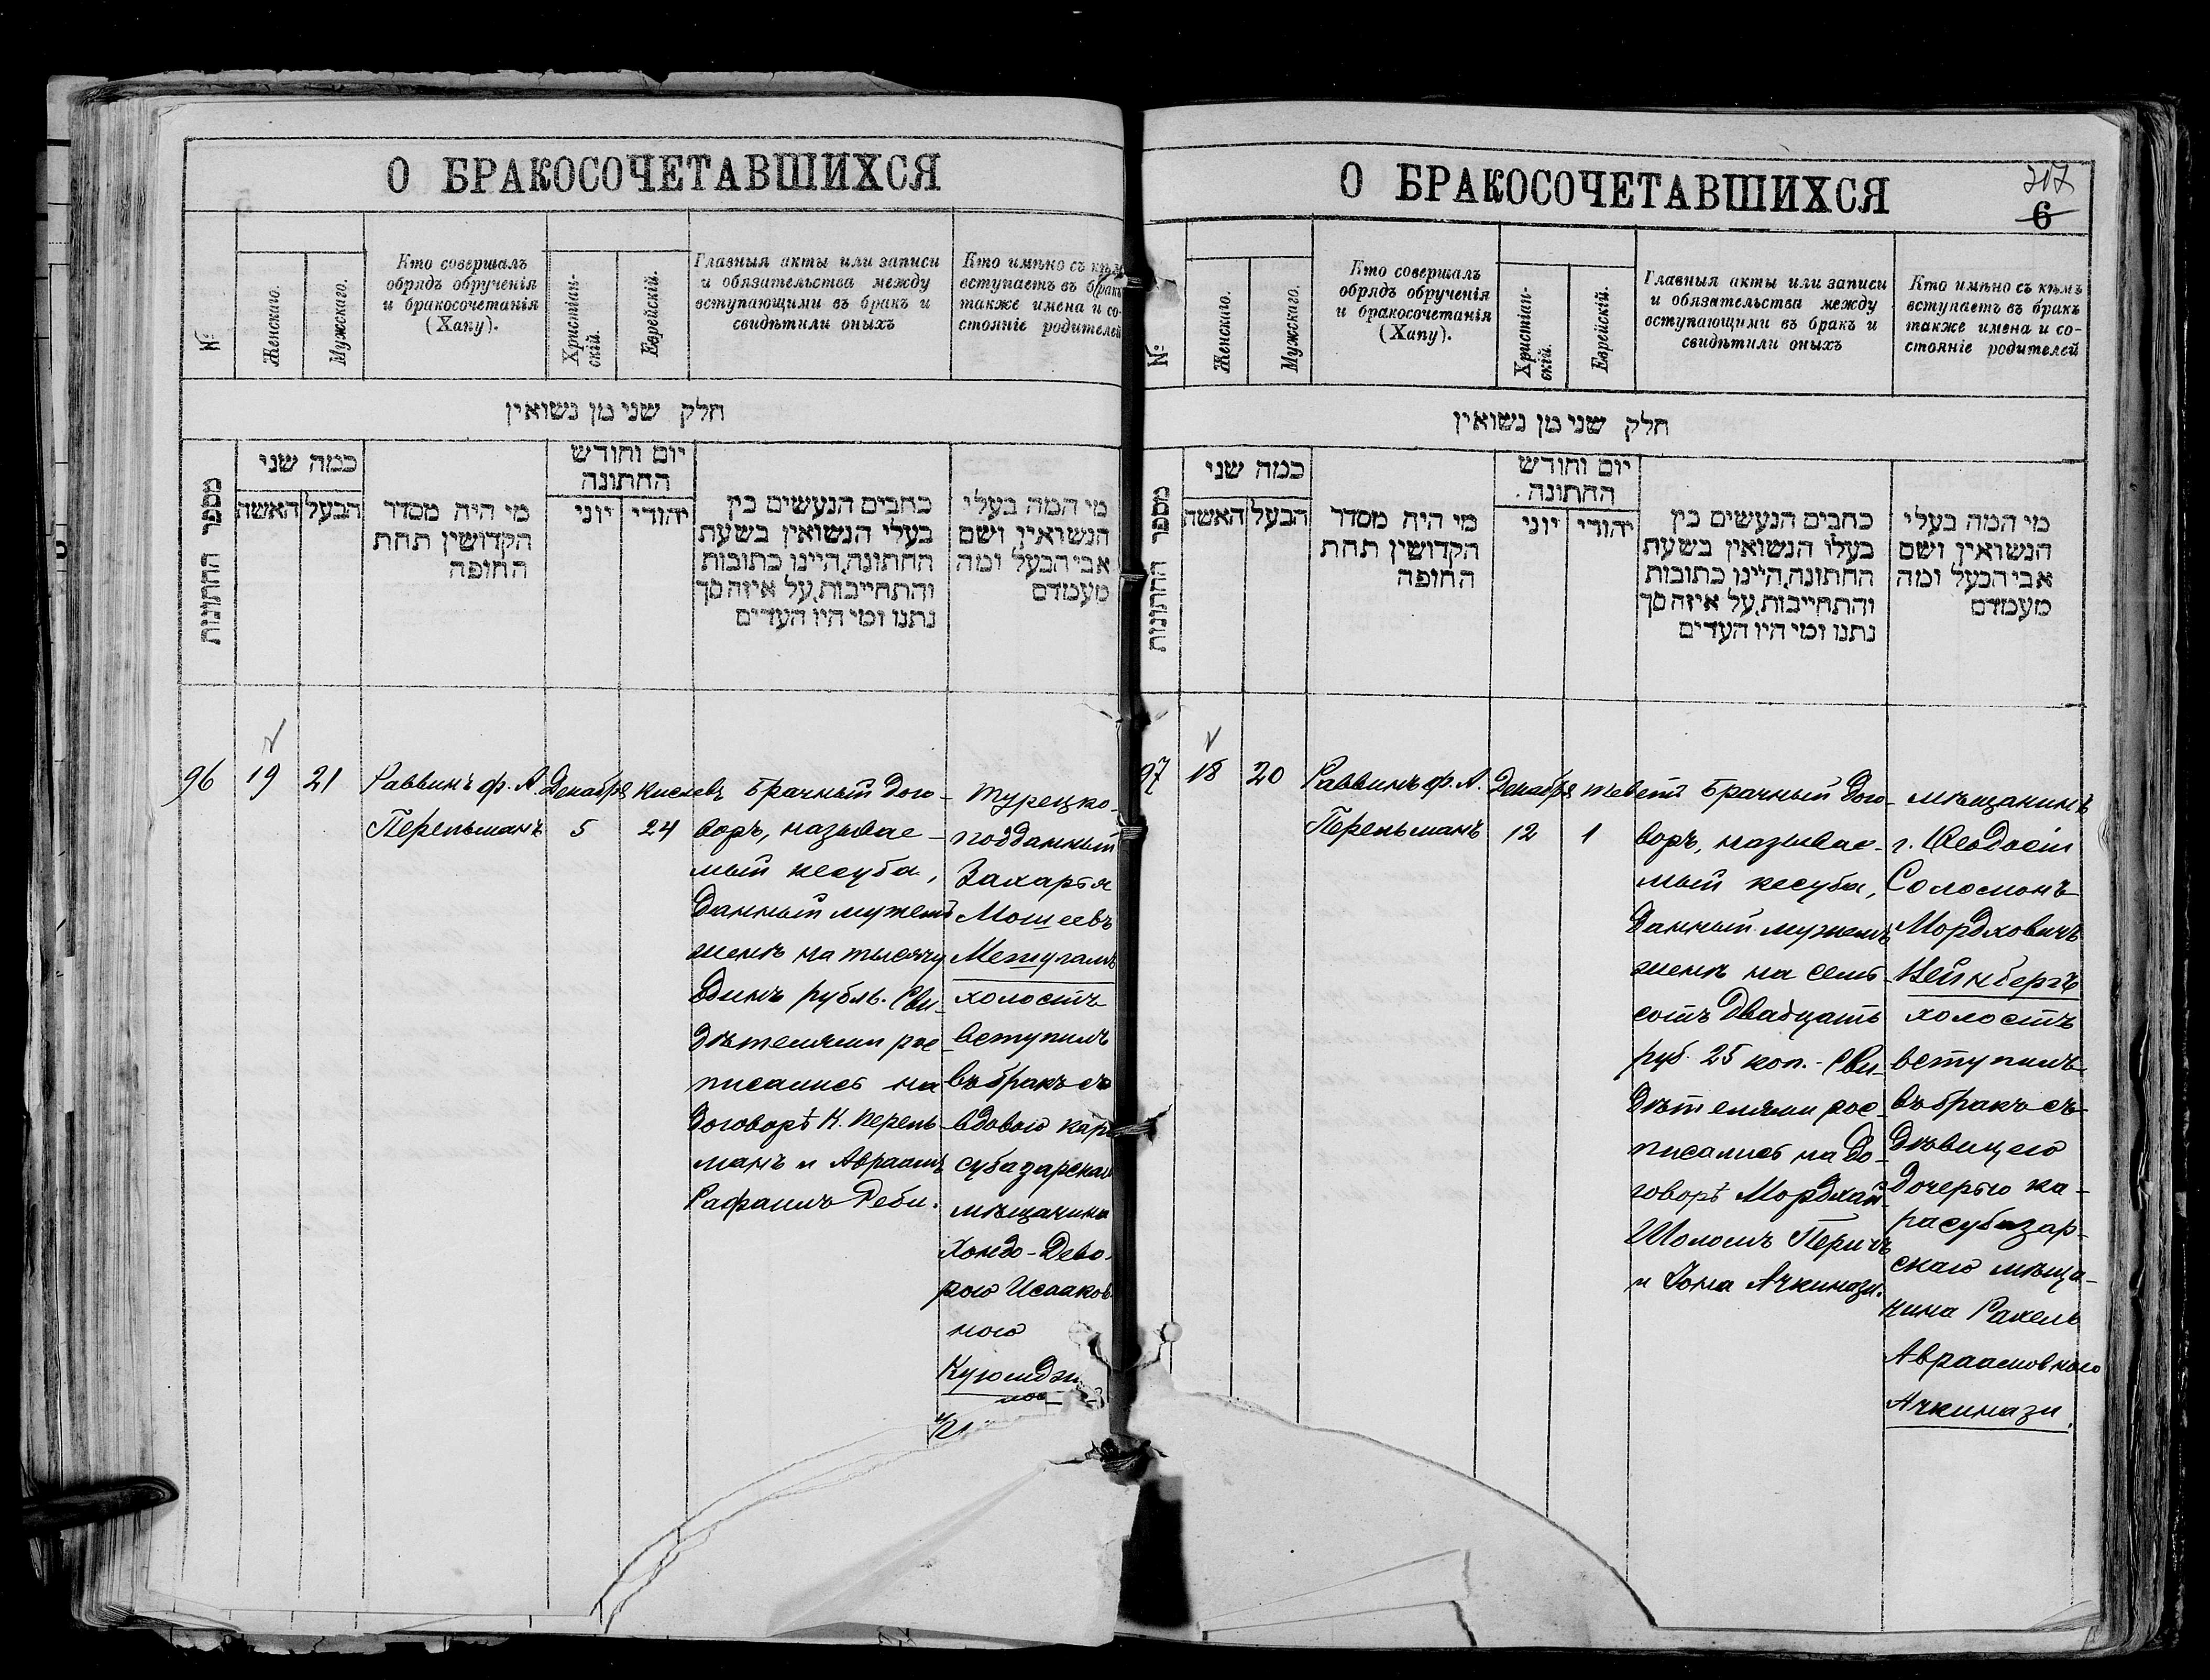 О БРАКОСОЧЕТАВШИХСЯ
№
Женскаго.
Мужскаго.
Кто совершалъ
обрядъ обрученія
и бракосочетанія
(Хапу).
Христіан-
скій.
Еврейскій.
Главныя акты или записи
и обязательства между
вступающими въ бракъ и
свидѣтили оныхъ
Кто имѣно съ кѣмъ
вступаетъ въ бракъ
также имена и со-
стояніе родителей
חלק שני מן נשואין
מספר החתונות
כמה שני
האשה
הבעל
מי היה מסדר
הקדושין תחת
החופה
יום וחודש
החתונה
יוני
יהודי
כתבים הנעשים בין
בעלי הנשואין בשעת
החתונה, היינו כתובות
והתחייבות, על איזה סך
נתנו ומי היו העדים
מי המה בעלי
הנשואין ושם
אבי הבעל ומה
מעמדם
96
19
21
Раввинъ ф. А.
Перельманъ
Декабря
5
кислевъ
24
Брачный дого-
воръ, называе-
мый кесуба,
данный мужемъ
женѣ на тысячу
одинъ рубль. Сви-
дѣтелями рас-
писались на
договорѣ К. Перель-
манъ и Авраамъ
Рафаилъ Деби.
Турецко-
подданный
Захарья
Мошеевъ
Мешуламъ
холостъ
вступилъ
въ бракъ съ
вдовою кара-
субазарскаго
мѣщанина
Хондо-Дево-
рою Исааков-
ною
О БРАКОСОЧЕТАВШИХСЯ
217
6
№
Женскаго.
Мужскаго.
Кто совершалъ
обрядъ обрученія
и бракосочетанія
(Хапу).
Христіан-
скій.
Еврейскій.
Главныя акты или записи
и обязательства между
вступающими въ бракъ и
свидѣтили оныхъ
Кто имѣно съ кѣмъ
вступаетъ въ бракъ
также имена и со-
стояніе родителей
חלק שני מן נשואין
מספר החתונות
כמה שני
האשה
הבעל
מי היה מסדר
הקדושין תחת
החופה
יום וחודש
החתונה
יוני
יהודי
כתבים הנעשים בין
בעלי הנשואין בשעת
החתונה, היינו כתובות
והתחייבות, על איזה סך
נתנו ומי היו העדים
מי המה בעלי
הנשואין ושם
אבי הבעל ומה
מעמדם
97
18
20
Раввинъ ф. А.
Перельманъ
Декабря
12
тевета
1
Брачный дого-
воръ, называе-
мый кесуба,
данный мужемъ
женѣ на семь-
сотъ двадцать
руб. 25 коп. - Сви-
дѣтелями рас-
писались на до-
говорѣ Мордхай
Шоломъ Перичъ
и Іона Ачкинази.
мѣщанинъ
г. Ѳеодосіи
Соломонъ
Мордховичъ
Вейнбергъ
холостъ
вступилъ
въ бракъ съ
дѣвицею
дочерью ка-
расубазар-
скаго мѣща-
нина Рахель
Авраамовною
Ачкинази.